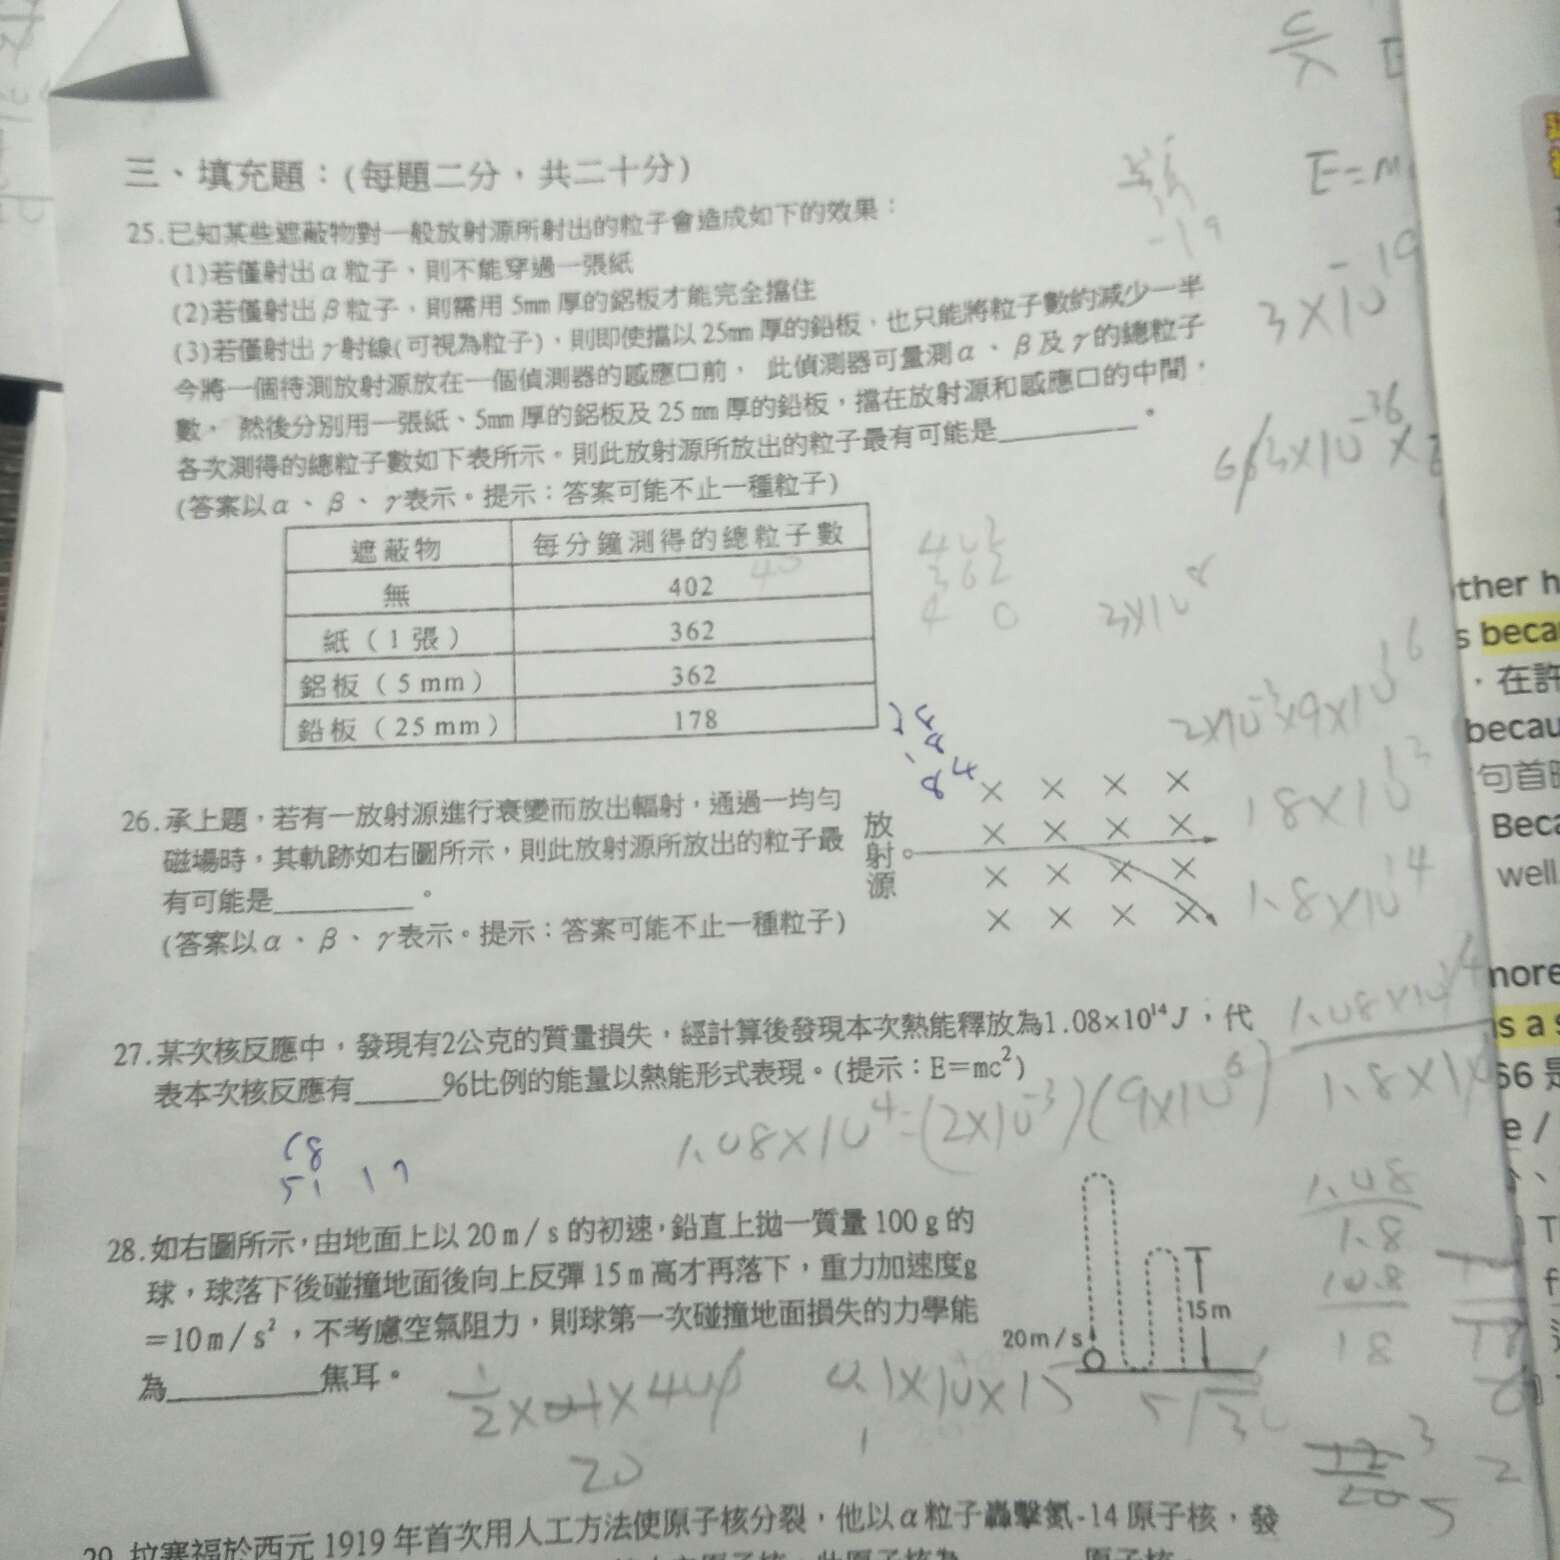 三、填充題：(每題二分，共二十分)
25.已知某些遮蔽物對一般放射源所射出的粒子會造成如下的效果：
(1)若僅射出α粒子、則不能穿過一張紙
(2)若僅射出β粒子，則需用 5mm 厚的鋁板才能完全擋住
(3)若僅射出γ射線(可視為粒子)，則即使擋以 25mm 厚的鉛板，也只能將粒子數約減少一半
今將一個待測放射源放在一個偵測器的感應口前， 此偵測器可量測α、β及γ的總粒子
數， 然後分別用一張紙、5mm 厚的鋁板及 25 mm 厚的鉛板，擋在放射源和感應口的中間，
各次測得的總粒子數如下表所示。則此放射源所放出的粒子最有可能是________。
(答案以α、β、γ表示。提示：答案可能不止一種粒子)
遮蔽物 每分鐘測得的總粒子數
無 402
紙（1張） 362
鋁板（5 mm） 362
鉛板（25 mm） 178
26.承上題，若有一放射源進行衰變而放出輻射，通過一均勻
磁場時，其軌跡如右圖所示，則此放射源所放出的粒子最
有可能是________。
(答案以α、β、γ表示。提示：答案可能不止一種粒子)
放射源
27.某次核反應中，發現有2公克的質量損失，經計算後發現本次熱能釋放為1.08×10¹⁴J，代
表本次核反應有_____%比例的能量以熱能形式表現。(提示：E＝mc²)
1.08×10⁴=(2×10⁻³)(9×10⁶)
68
51 17
28.如右圖所示，由地面上以 20 m / s 的初速，鉛直上拋一質量 100 g 的
球，球落下後碰撞地面後向上反彈 15 m 高才再落下，重力加速度g
＝10 m / s²，不考慮空氣阻力，則球第一次碰撞地面損失的力學能
為________焦耳。
20m/s
15m
0.1×10×15
20
29.拉塞福於西元 1919 年首次用人工方法使原子核分裂，他以α粒子轟擊氮-14 原子核，發
-19
3×10⁻¹⁹
402
362
4 0
3×10⁸
2×10⁻³×9×10¹⁶
18×10¹³
1.8×10¹⁴
1.08×10¹⁴
1.08
1.8
10.8
18
ther h
s beca
，在許
becau
Beca
well
more
s a s